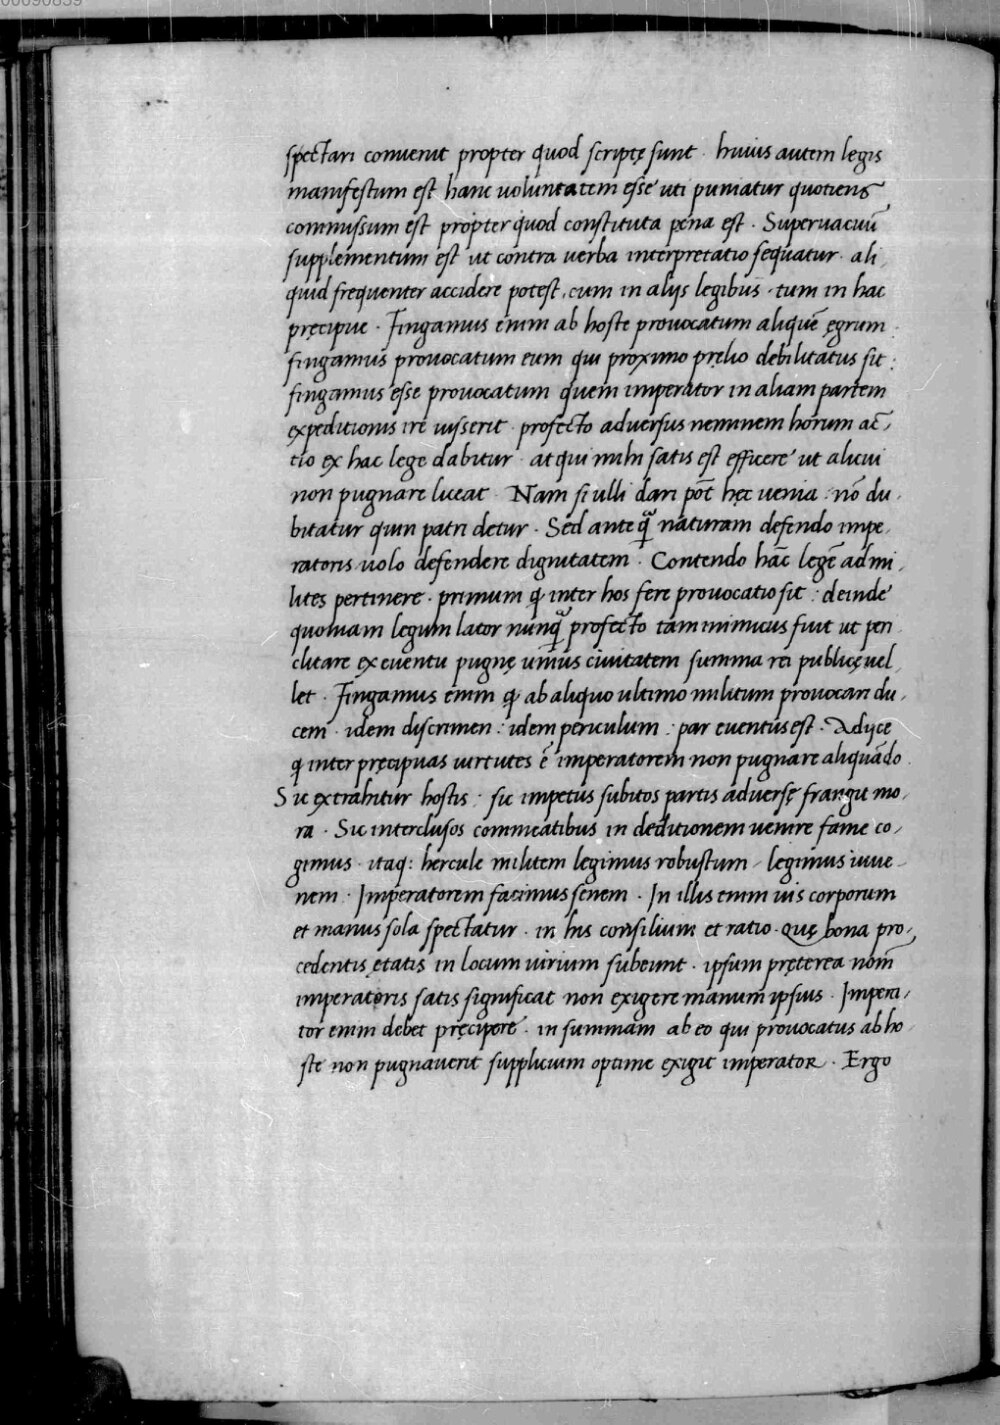 00090839
spectari conuenit propter quod scriptę sunt · huius autem legis
manifestum est hanc uoluntatem esse uti puniatur quotiens
commissum est propter quod constituta pena est · Superuacuū
supplementum est ut contra uerba interpretatio sequatur · ali
quid frequenter accidere potest, cum in alijs legibus · tum in hac
pręcipue · Fingamus enim ab hoste prouocatum aliquē ęgrum
fingamus prouocatum eum qui proximo prelio debilitatus sit :
fingamus esse prouocatum quem imperator in aliam partem
expeditionis ire iusserit · profecto aduersus neminem horum ac̄,
tio ex hac lege dabitur · atqui mihi satis est efficere ut alicui
non pugnare liceat · Nam si ulli dari pōt hęc uenia : nō du,
bitatur quin patri detur · Sed ante q̄ naturam defendo impe,
ratoris uolo defendere dignitatem · Contendo hāc legē ad mi,
lites pertinere · primum ꝙ inter hos fere prouocatio sit : deinde
quoniam legum lator nunq̄ profecto tam inimicus fuit ut peri
clitare ex euentu pugnę unius ciuitatem summa rei publicę uel,
let · Fingamus enim ꝙ ab aliquo ultimo militum prouocari du,
cem · idem discrimen : idem periculum : par euentus est · Adijce
ꝙ inter pręcipuas uirtutes ē imperatorem non pugnare aliquādo
Sic extrahitur hostis : sic impetus subitos partis aduersę frangit mo,
ra · Sic interclusos commeatibus in deditionem uenire fame co,
gimus · itaq: hercule militem legimus robustum , legimus iuue,
nem · Imperatorem facimus senem · In illis enim uis corporum
et manus sola spectatur · in his consilium et ratio · quę bona pro,
cedentis ętatis in locum uirium subeunt · ipsum pręterea nom̄
imperatoris satis significat non exigere manum ipsius · Impera,
tor enim debet pręcipere · in summam ab eo qui prouocatus ab ho
ste non pugnauerit supplicium optime exigit imperator · Ergo